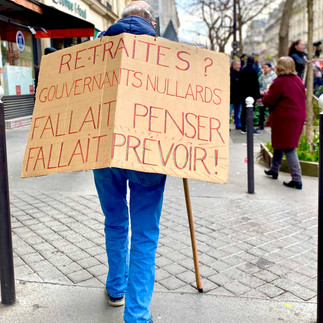 RETRAITES ?
GOUVERNANTS NULLARDS
FALLAIT PENSER
FALLAIT PRÉVOIR !